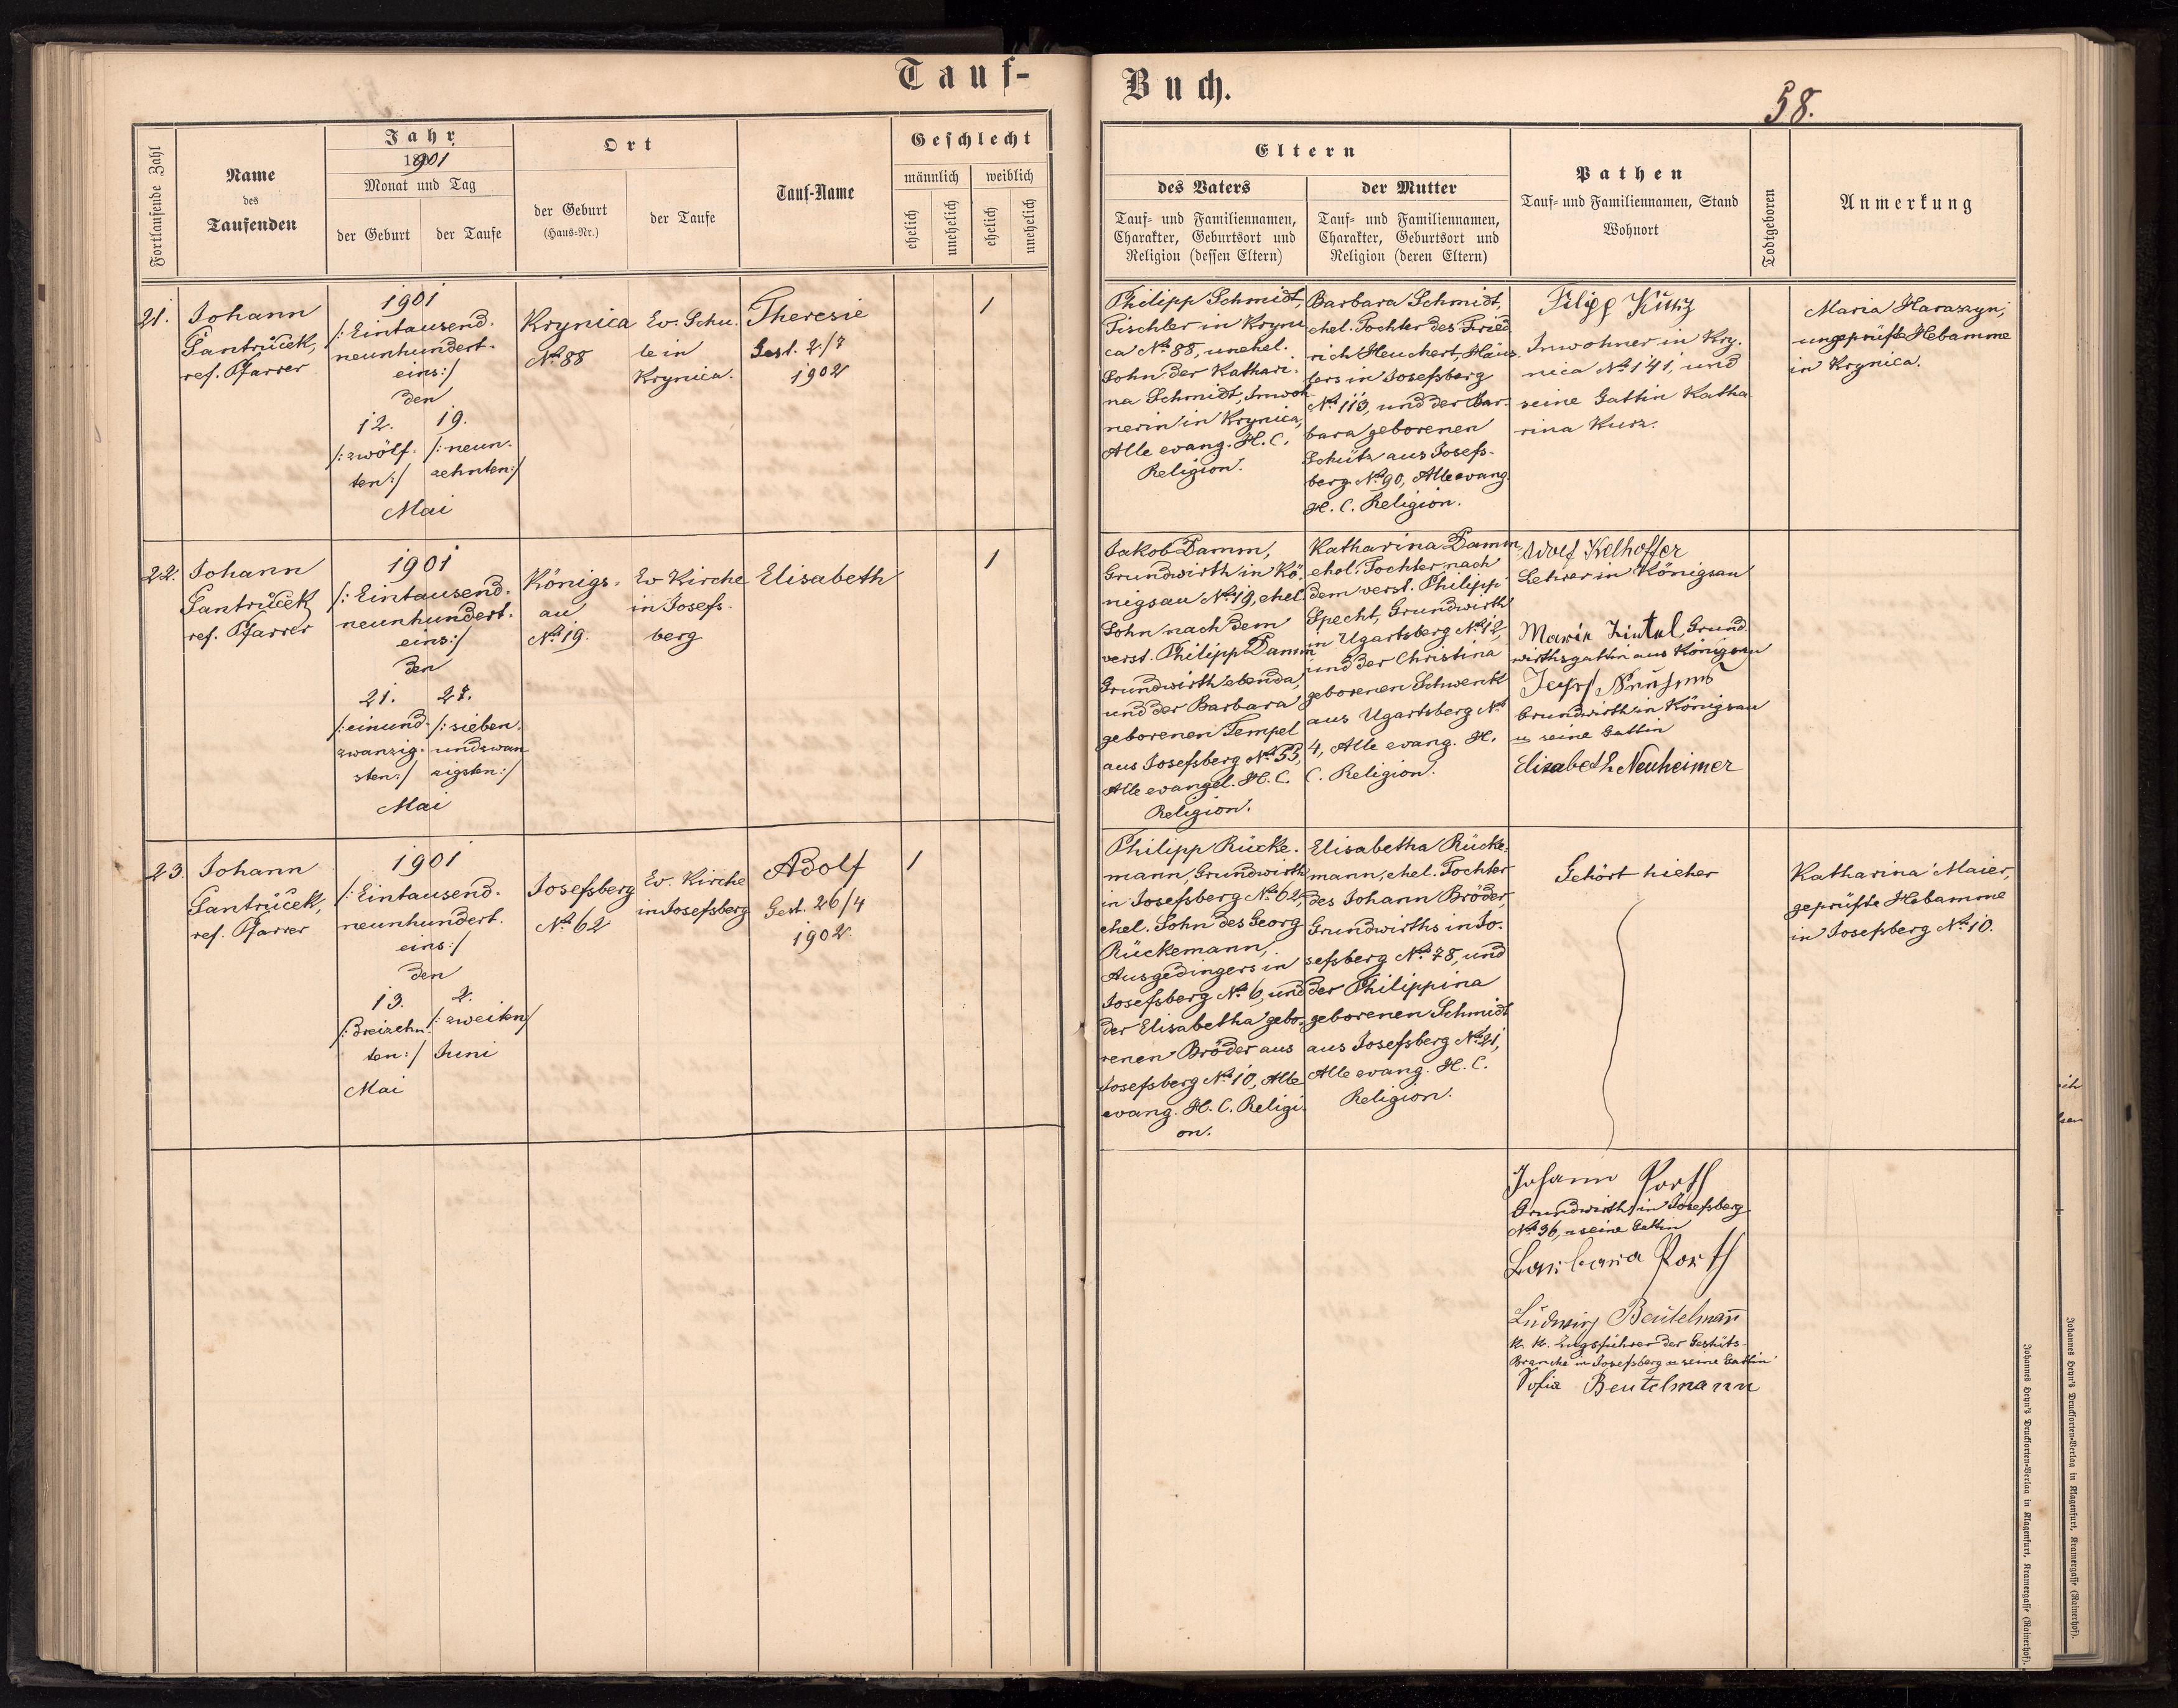 Tauf-
Buch.
58.
Fortlaufende Zahl
Name
des
Taufenden
Jahr
1901
Monat und Tag
der Geburt
der Taufe
Ort
der Geburt
(Haus-Nr.)
der Taufe
Tauf-Name
Geschlecht
männlich
weiblich
ehelich
unehelich
ehelich
unehelich
Eltern
des Vaters
Tauf- und Familiennamen,
Charakter, Geburtsort und
Religion (dessen Eltern)
der Mutter
Tauf- und Familiennamen,
Charakter, Geburtsort und
Religion (deren Eltern)
Pathen
Tauf- und Familiennamen, Stand
Wohnort
Todtgeboren
Anmerkung
21.
Johann
Santrůček,
ref. Pfarrer
1901
/: Eintausend-
neunhundert-
eins:/
den
12.
/: zwölf-
ten:/
19.
/: neun-
zehnten:/
Mai
Krynica
No 88
Ev. Schu-
le in
Krynica.
Theresie
Gest. 2/7
1902
1
Philipp Schmidt,
Tischler in Kryni
ca No 88, unehel.
Sohn der Kathari-
na Schmidt, Inwoh
nerin in Krynica,
Alle evang. H. C.
Religion.
Barbara Schmidt,
ehel. Tochter des Fried
rich Heuchert, Häus-
lers in Josefsberg
No 113, und der Bar-
bara geborenen
Schütz aus Josefs-
berg No 90, Alle evang.
H. C. Religion.
Filipp Kurz
Inwohner in Kry-
nica No 141, und
seine Gattin Katha
rina Kurz.
Maria Haraszyn,
ungeprüfte Hebamme
in Krynica.
22.
Johann
Santrůček
ref. Pfarrer
1901
/: Eintausend-
neunhundert-
eins:/
den
21.
/: einund-
zwanzig-
sten:/
27.
/: sieben-
undzwan
zigsten:/
Mai
Königs-
au
No 19.
Ev Kirche
in Josefs-
berg
Elisabeth
1
Jakob Damm,
Grundwirth in Kö-
nigsau No 19, ehel.
Sohn nach dem
verst. Philipp Damm
Grundwirth ebenda,
und der Barbara
geborenen Tempel
aus Josefsberg No 53,
Alle evangel. H. C.
Religion.
Katharina Damm,
ehel. Tochter nach
dem verst. Philipp
Specht, Grundwirth
in Ugartsberg No 12,
und der Christina
geborenen Schwenk
aus Ugartsberg No
4, Alle evang. H.
C. Religion.
Adolf Kelhoffer
Lehrer in Königsau
Maria Zintel Grund
wirthsgattin aus Königsau
Grundwirth in Königsau
u. seine Gattin
Elisabeth Neuheimer
23.
Johann
Santrůček,
ref. Pfarrer
1901
/: Eintausend-
neunhundert-
eins:/
den
13.
/: dreizehn-
ten:/
Mai
2.
/: zweiten/
Juni
Josefsberg
No 62
Ev. Kirche
in Josefsberg
Adolf
Gest. 26/4
1902.
1
Philipp Rücke-
mann, Grundwirth
in Josefsberg No 62,
ehel. Sohn des Georg
Rückemann,
Ausgedingers in
Josefsberg No 6, und
der Elisabetha gebo-
renen Bröder aus
Josefsberg No 10, Alle
evang. H. C. Religi-
on.
Elisabetha Rücke-
mann, ehel. Tochter
des Johann Bröder,
Grundwirths in Jo-
sefsberg No 78, und
der Philippina
geborenen Schmidt
aus Josefsberg No 21,
Alle evang. H. C.
Religion.
Gehört hieher
Johann Porth
Grundwirth in Josefsberg
No 36, u seine Gattin
Barbara Porth
Ludwig Beutelmann
k. k. Zugsführer der Gestüts-
Branche in Josefsberg u seine Gattin
Sofia Beutelmann
Katharina Maier,
geprüfte Hebamme
in Josefsberg No 10.
Johannes Heyn's Drucksorten-Verlag in Klagenfurt, Kramergasse (Rainerhof).
Johannes Heyn's Drucksorten-Verlag in Klagenfurt, Kramergasse (Rainerhof).